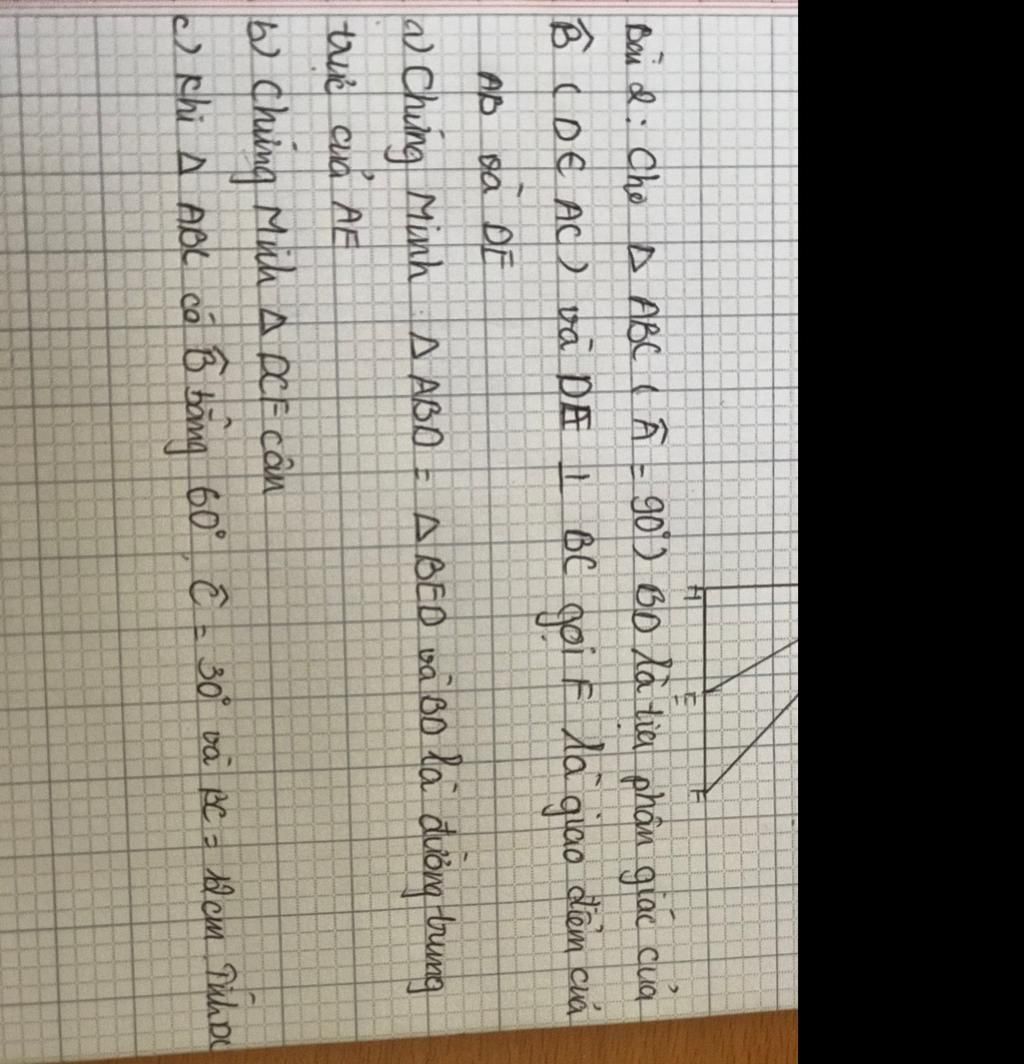 H E F
Bài 2: Cho Δ ABC ( Â = 90°) BD là tia phân giác của
B̂ ( D ∈ AC ) và DE ⊥ BC gọi F là giao điểm của
AB và DE
a) Chứng Minh: Δ ABD = Δ BED và BD là đường trung
trực của AE
b) Chứng Minh Δ DCF cân
c) Khi Δ ABC có B̂ bằng 60°, Ĉ = 30° và BC = 12cm. Tính DC